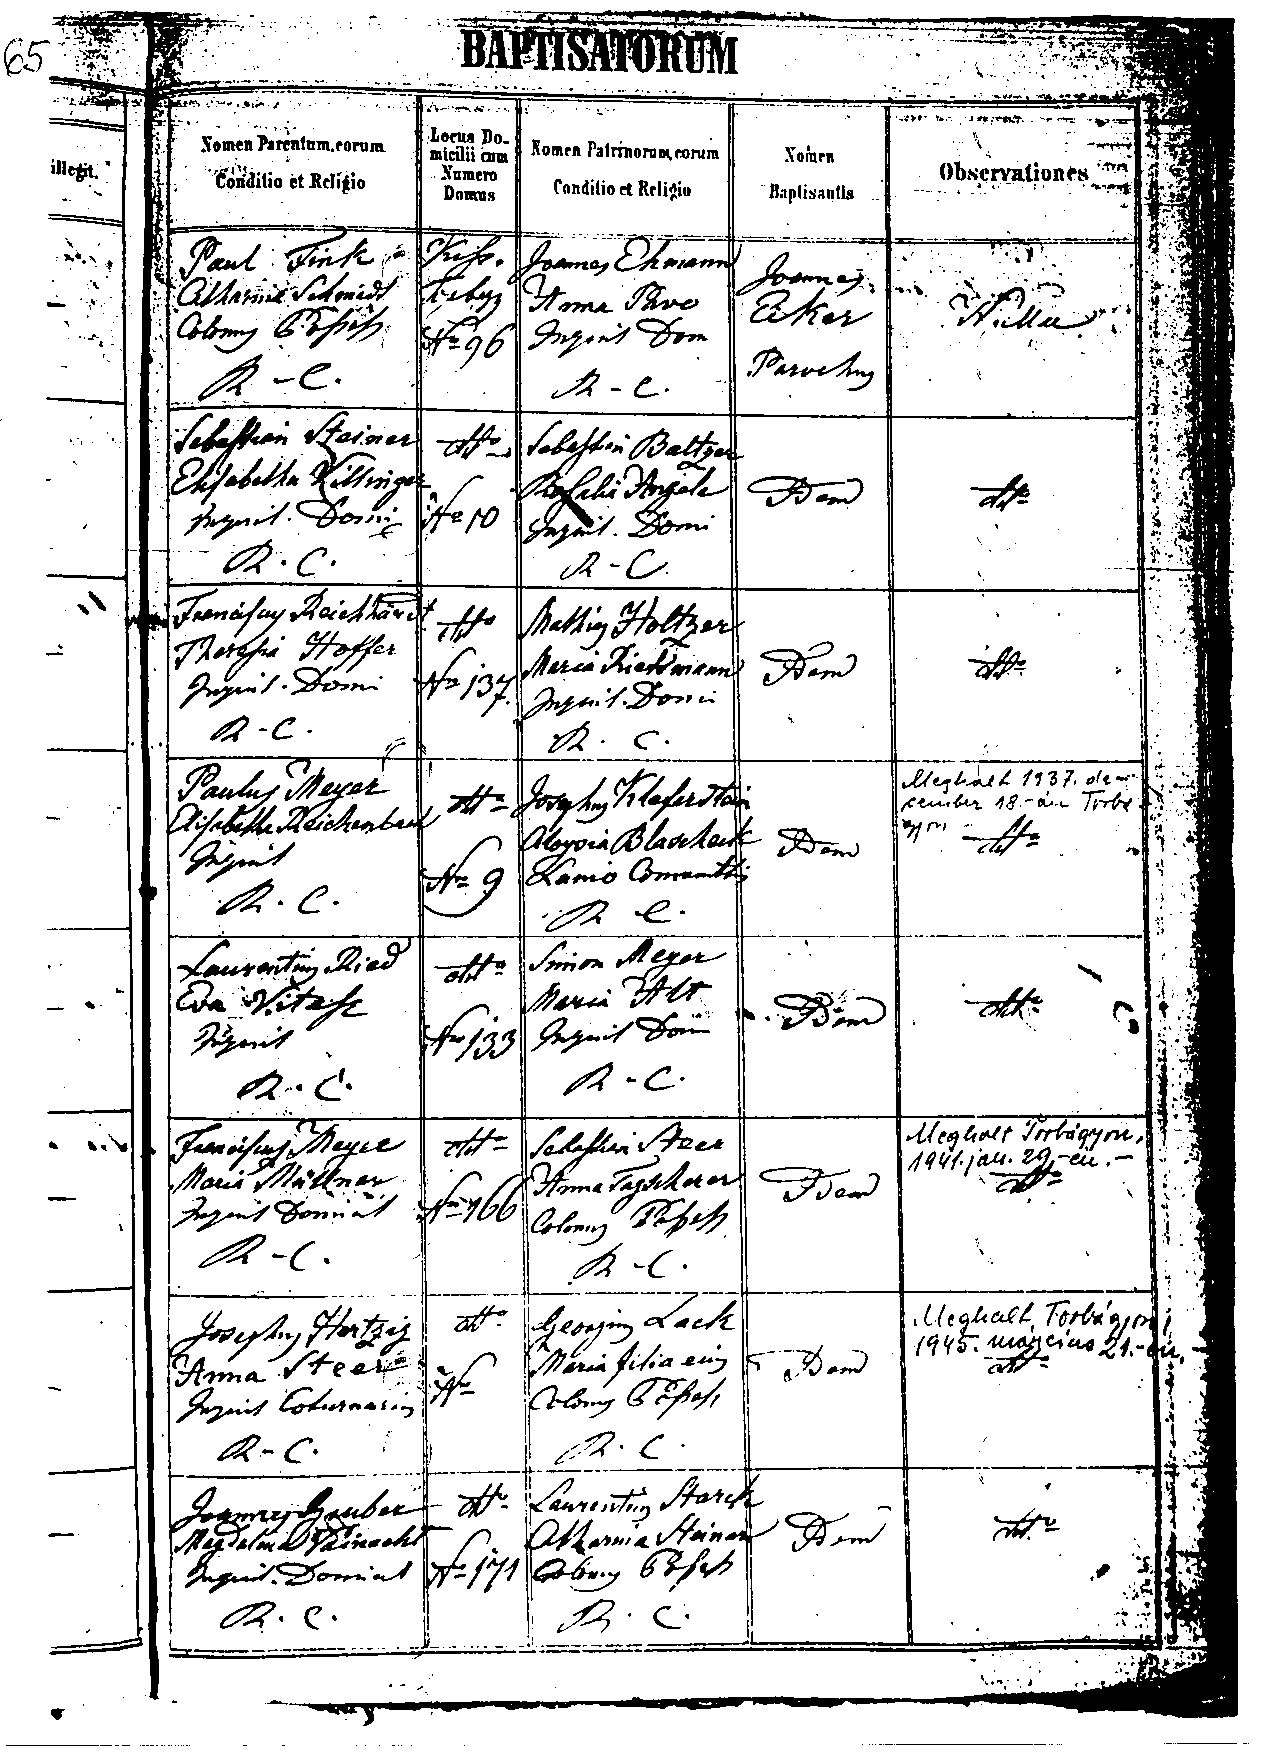 65
BAPTISATORUM
illegit.
Nomen Parentum, eorum
Conditio et Religio
Locus Do-
micilii cum
Numero
Domus
Nomen Patrinorum, eorum
Conditio et Religio
Nomen
Baptisantis
Observationes
Paul Fink
Catharina Schmidt
Colonus
R-C.
No 96
Joannes Ehmann
Anna
Inquil Dom
R-C.
Joannes
Eiker
Parochus
Nulla
Sebastian Steiner
Elisabetha Killinger
Inquil. Domi
R.C.
dtto
No 10
Sebastian Baltzer
Rosalia Angele
Inquil. Domi
R-C.
Idem
dtto
Franciscus Reichhardt
Theresia Hoffer
Inquil. Domi
R-C.
dtto
No 137.
Mathias Holtzer
Maria Riedmann
Inquil. Domi
R. C.
Idem
dtto
Paulus Meyer
Elisabetha Reichenbach
Inquil
R.C.
dtto
No 9
Josephus Kleferstein
Aloysia Blascheck
Lanio
R C.
Idem
Meghalt 1937. de-
cember 18.-án Torbá
gyon
dtto
Laurentius Ried
Eva
Inquil
R.C.
dtto
No 133
Simon Meyer
Maria Alt
Inquil Dom
R-C.
Idem
dtto
Franciscus Meyer
Maria Müllner
Inquil Domiat
R-C.
dtto
No 166
Sebastian Steer
Anna
Colonus
R-C.
Idem
Meghalt Torbágyon,
1941. jan. 29.-én.-
dtto
Josephus Hertzig
Anna Steer
Inquil
R-C.
dtto
No
Georgius Lack
Maria filia eius
Colonus
R.C.
Idem
Meghalt, Torbágyon,
1945. március 21.-én.
dtto
Joannes Gruber
Magdalena
Inquil. Domiat
R.C.
dtto
No 171
Laurentius Starck
Catharina Steiner
Colonus
R.C.
Idem
dtto